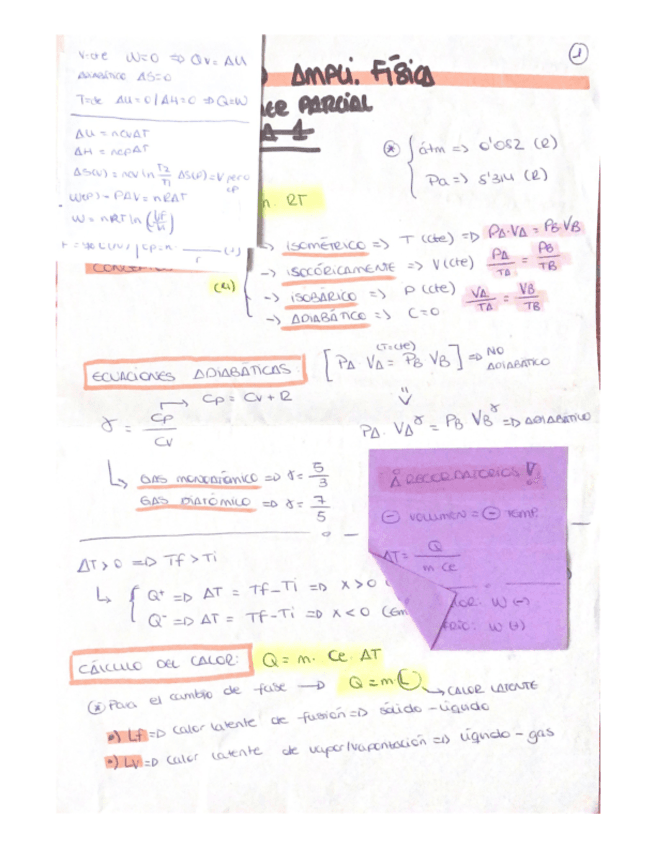 V=cte W=0 => Qv = ΔU
ADIABÁTICO ΔS=0
T=cte ΔU=0 / ΔH=0 => Q=W
ΔU = nCvΔT
ΔH = nCpΔT
ΔS(V) = nCv ln T2/T1 ΔS(P)=V pero cp
W(P) = PΔV = nRΔT
W = nRT ln (Vf/Vi)
1
AMPLI. FÍSICA
PARCIAL
A 1
* átm => 0'082 (R)
Pa => 8'314 (R)
n. RT
-> ISOMÉTRICO => T (cte) => PA·VA = PB·VB
-> ISOCÓRICAMENTE => V (cte) PA/TA = PB/TB
-> ISOBÁRICO => P (cte) VA/TA = VB/TB
-> ADIABÁTICO => C=0
ECUACIONES ADIABÁTICAS
[PA VA = PB VB] => NO ADIABÁTICO
(T=cte)
γ = Cp/Cv
-> Cp = Cv + R
PA·VA^γ = PB VB^γ => ADIABÁTICO
GAS MONOATÓMICO => γ = 5/3
GAS DIATÓMICO => γ = 7/5
RECORDATORIOS
⊖ VOLUMEN = ⊖ TEMP.
ΔT = Q / m·Ce
W (-)
W (+)
ΔT > 0 => Tf > Ti
Q+ => ΔT = Tf - Ti => X > 0
Q- => ΔT = Tf - Ti => X < 0
CÁLCULO DEL CALOR: Q = m· Ce· ΔT
* Para el cambio de fase -> Q = m·L -> CALOR LATENTE
•) Lf => Calor latente de fusión => sólido - líquido
•) Lv => Calor latente de vapor/vaporización => líquido - gas